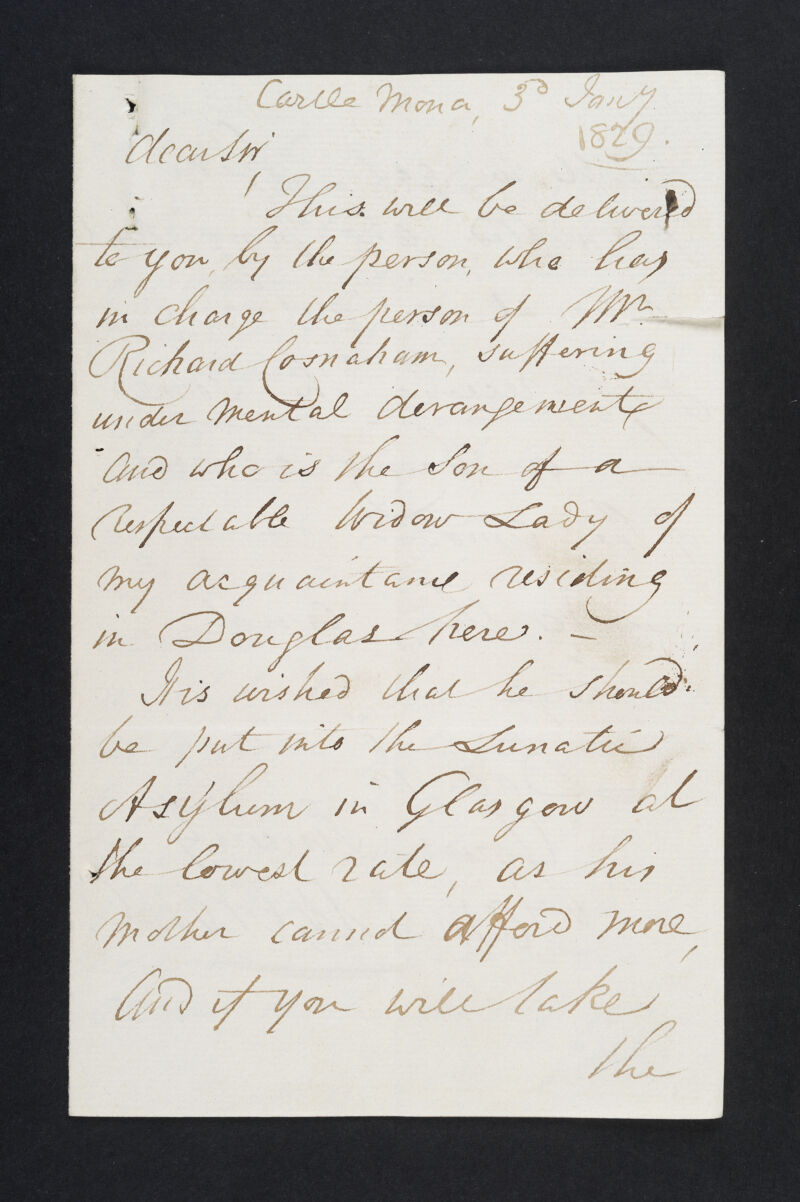 Castle Mona, 3d Jany
1829.
dear Sir,
This will be delivered
to you, by the person, who has
in charge the person of Mr
Richard Cosnaham, suffering
under mental derangement
And who is the Son of a
respectable Widow Lady of
my acquaintance residing
in Douglas here. –
It is wished that he should
be put into the Lunatic
Asylum in Glasgow at
the lowest rate, as his
Mother cannot afford more,
And if you will take
the